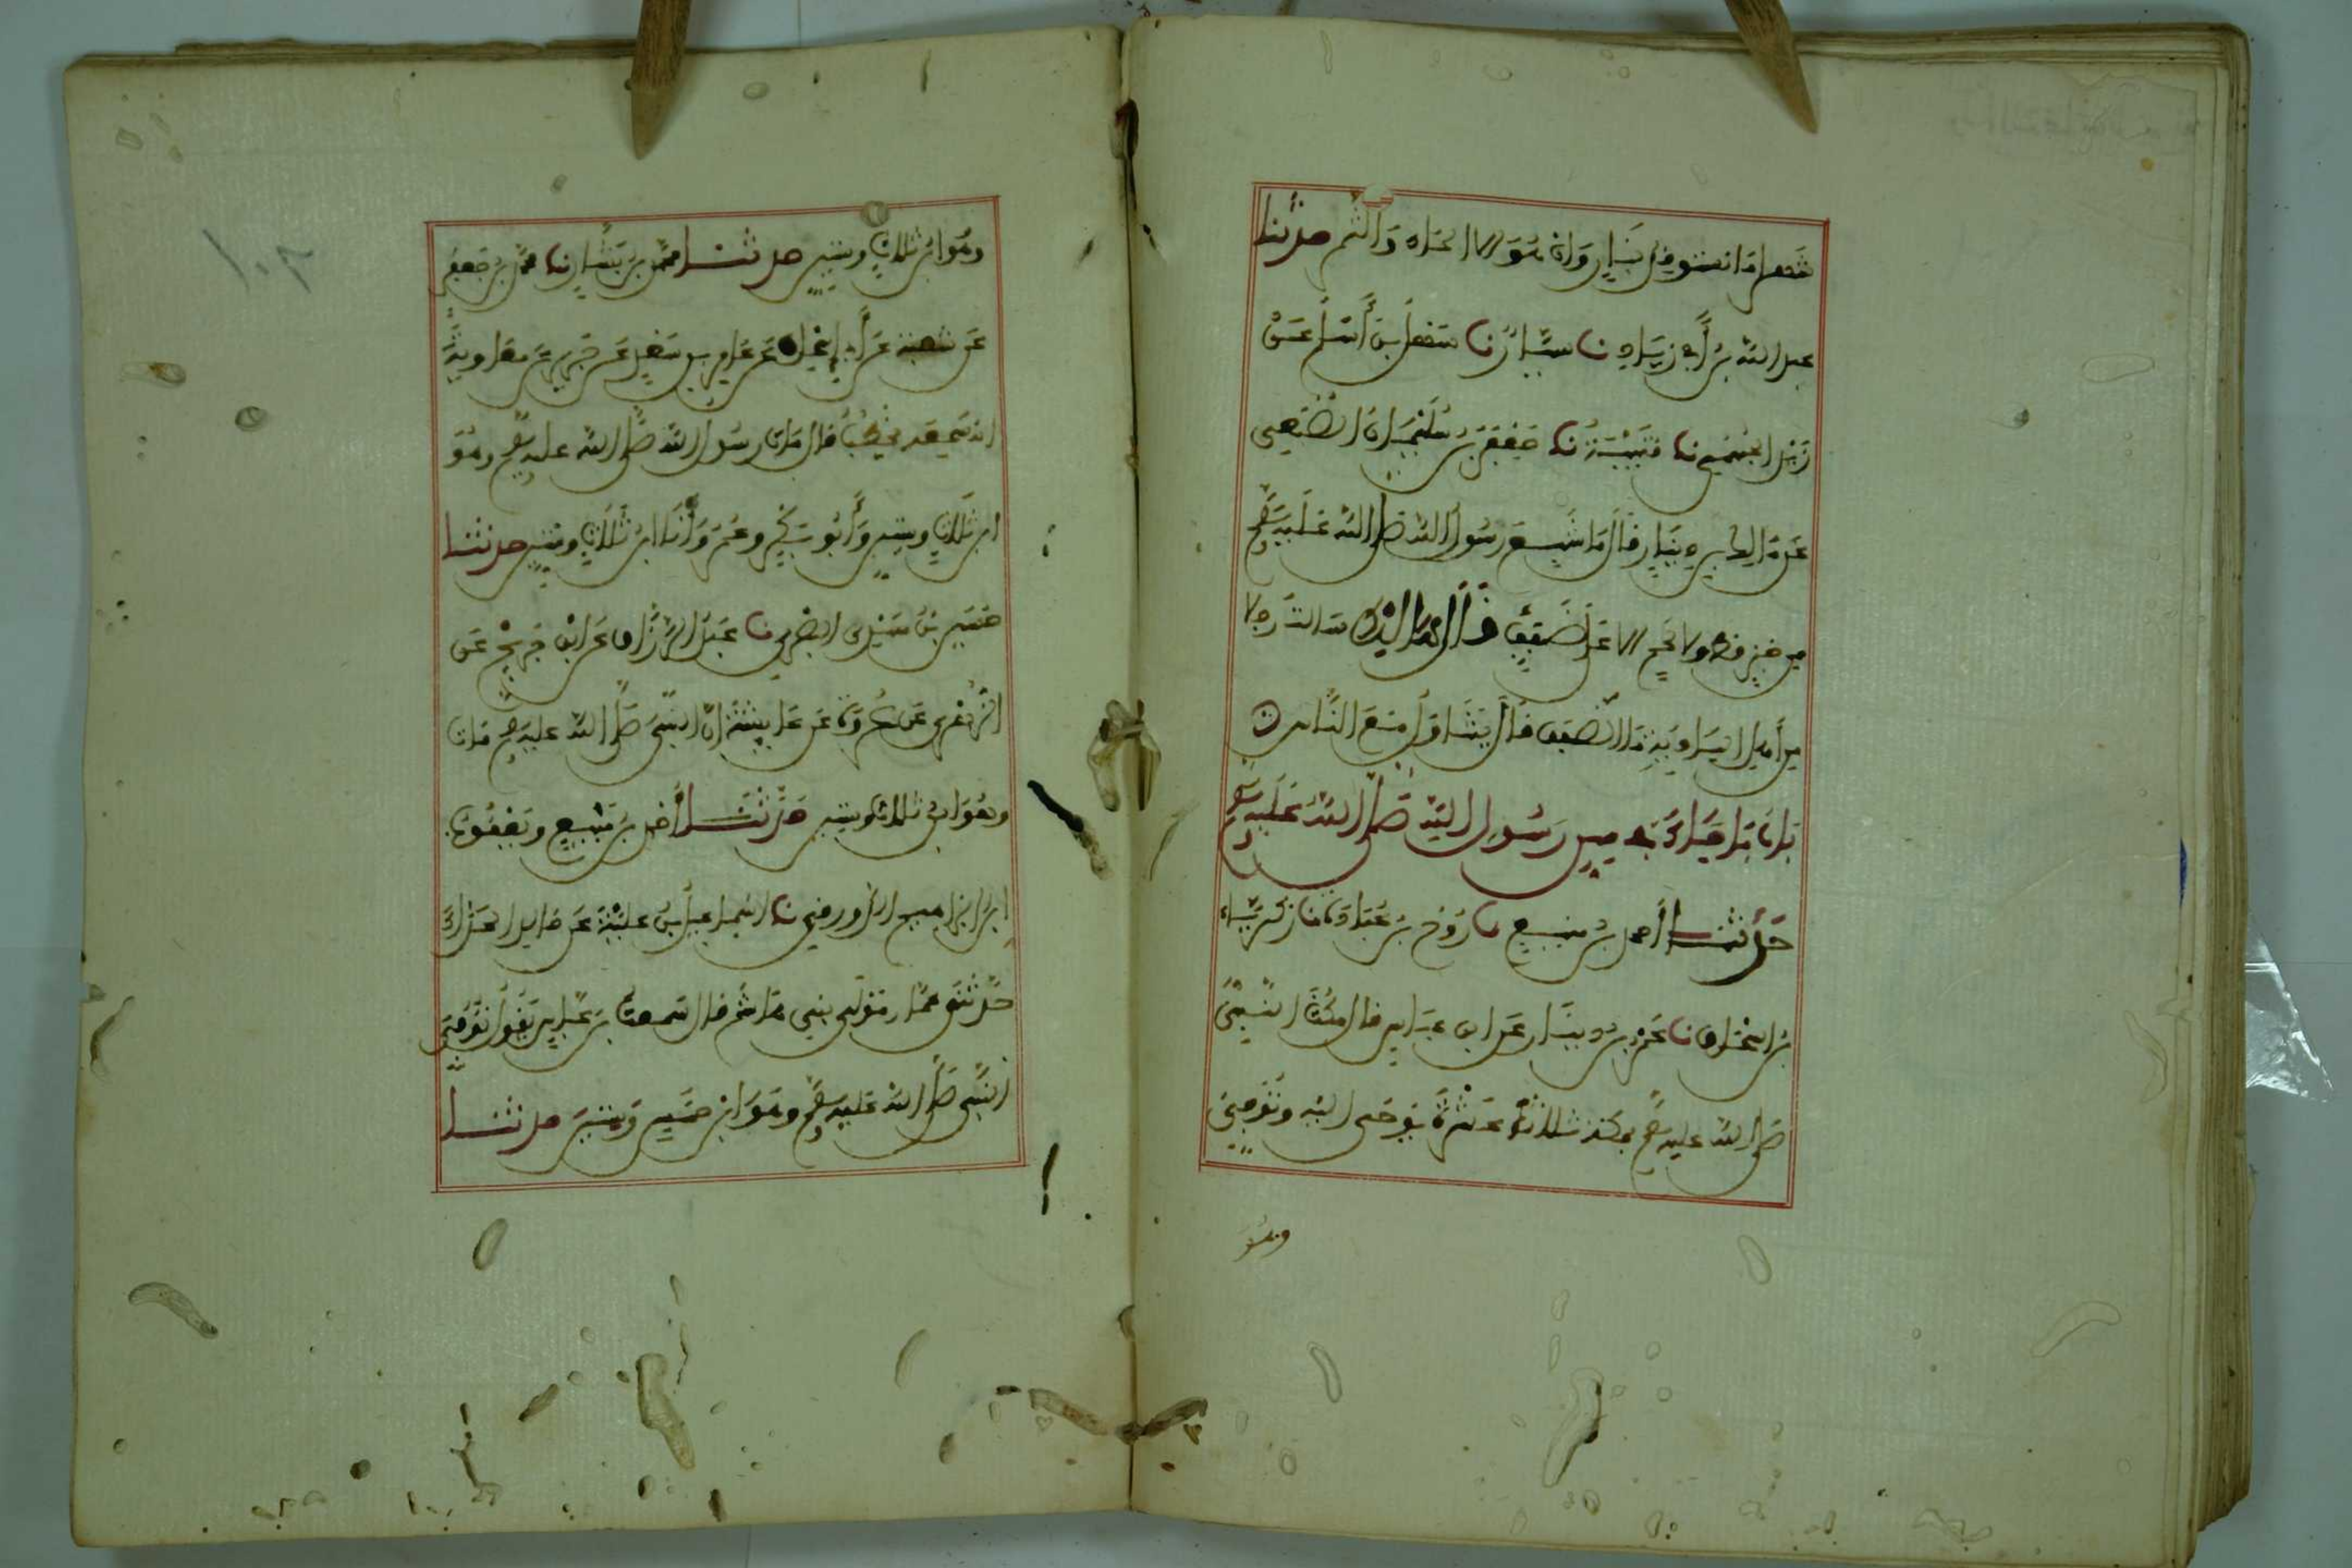 شهرا ما نستوقد بنار وان هو الا الماء والتمر حدثنا
عبد الله بن أبي زياد نا سيار نا سهل بن أسلم عن
حدثنا قتيبة نا جعفر بن سليمان الضبعي
عن مالك بن دينار قال ما شبع رسول الله صلى الله عليه وسلم
من خبز قط ولا لحم الا على ضفف قال مالك سالت رجلا
من أهل البادية ما الضفف قال يتناول مع الناس
باب ما جاء في سن رسول الله صلى الله عليه وسلم
حدثنا أحمد بن منيع نا روح بن عبادة نا زكرياء
بن إسحاق نا عمرو بن دينار عن ابن عباس قال مكث النبي
صلى الله عليه وسلم بمكة ثلاث عشرة يوحى اليه وتوفي
وهو
وهو ابن ثلاث وستين حدثنا محمد بن بشار نا محمد بن جعفر
عن شعبة عن أبي إسحاق عن عامر بن سعد عن جرير عن معاوية
انه سمعه يخطب قال مات رسول الله صلى الله عليه وسلم وهو
ابن ثلاث وستين وأبو بكر وعمر وأنا ابن ثلاث وستين حدثنا
حسين بن مهدي البصري نا عبد الرزاق عن ابن جريج عن
الزهري عن عروة عن عائشة ان النبي صلى الله عليه وسلم مات
وهو ابن ثلاث وستين حدثنا أحمد بن منيع ويعقوب
بن إبراهيم الدورقي نا اسماعيل بن علية عن خالد الحذاء
حدثني عمار مولى بني هاشم قال سمعت بن عباس يقول توفي
النبي صلى الله عليه وسلم وهو ابن خمس وستين حدثنا
١٠٢